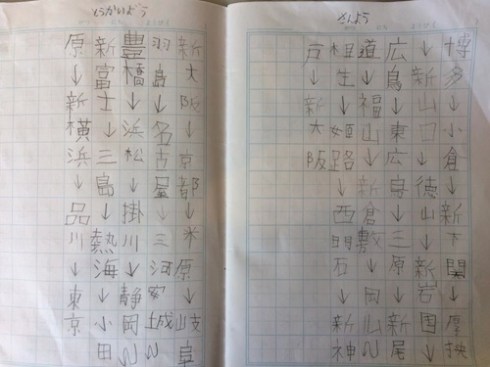 さんよう
博多↓小倉↓新下関↓厚狭
↓新山口↓徳山↓新岩国↓
広島↓東広島↓三原↓新尾
道↓福山↓新倉敷↓岡山↓
相生↓姫路↓西明石↓新神
戸↓新大阪
とうかいどう
新大阪↓京都↓米原↓岐阜
羽島↓名古屋↓三河安城↓
豊橋↓浜松↓掛川↓静岡↓
新富士↓三島↓熱海↓小田
原↓新横浜↓品川↓東京